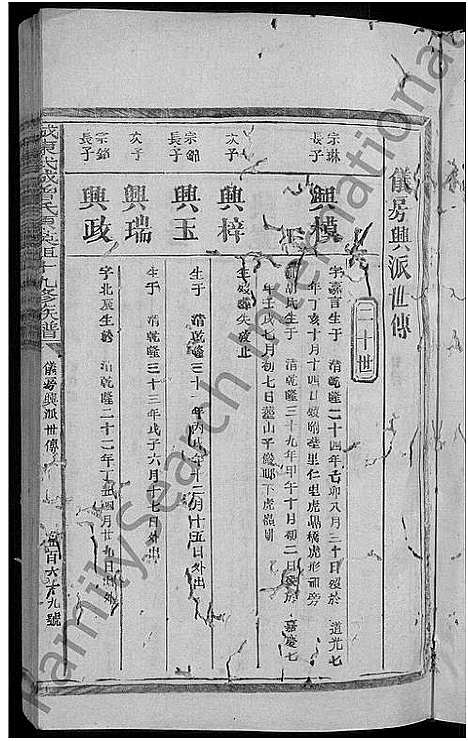 儀房興派世傳
二十世
宗琳
長子
興模
字嘉言生于 清乾隆二十四年己卯八月三十日歿於 道光七
年丁亥十月十四日 里仁里虎鼎橋虎形祠旁
胡氏生于 清乾隆三十九年甲午十月初二日歿於 嘉慶七
年壬戌七月初七日葬山 下虎
次子
興梓
生歿葬失攷止
宗錦
長子
興玉
生于 清乾隆三十一年丙戌十二月十五日外出
次子
興瑞
生于 清乾隆三十三年戊子六月 七日外出
宗銘
長子
興政
字北辰生於 清乾隆二十二年丁丑四月廿九日出
十九修族譜
儀房興派世傳
百六十九號
FamilySearch International